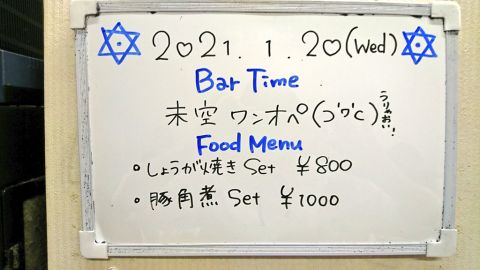 2021. 1. 20(Wed)
Bar Time
未空 ワンオペ(っ'ヮ'c)
うりゃおい!
Food Menu
• しょうが焼き Set ¥800
• 豚角煮 Set ¥1000